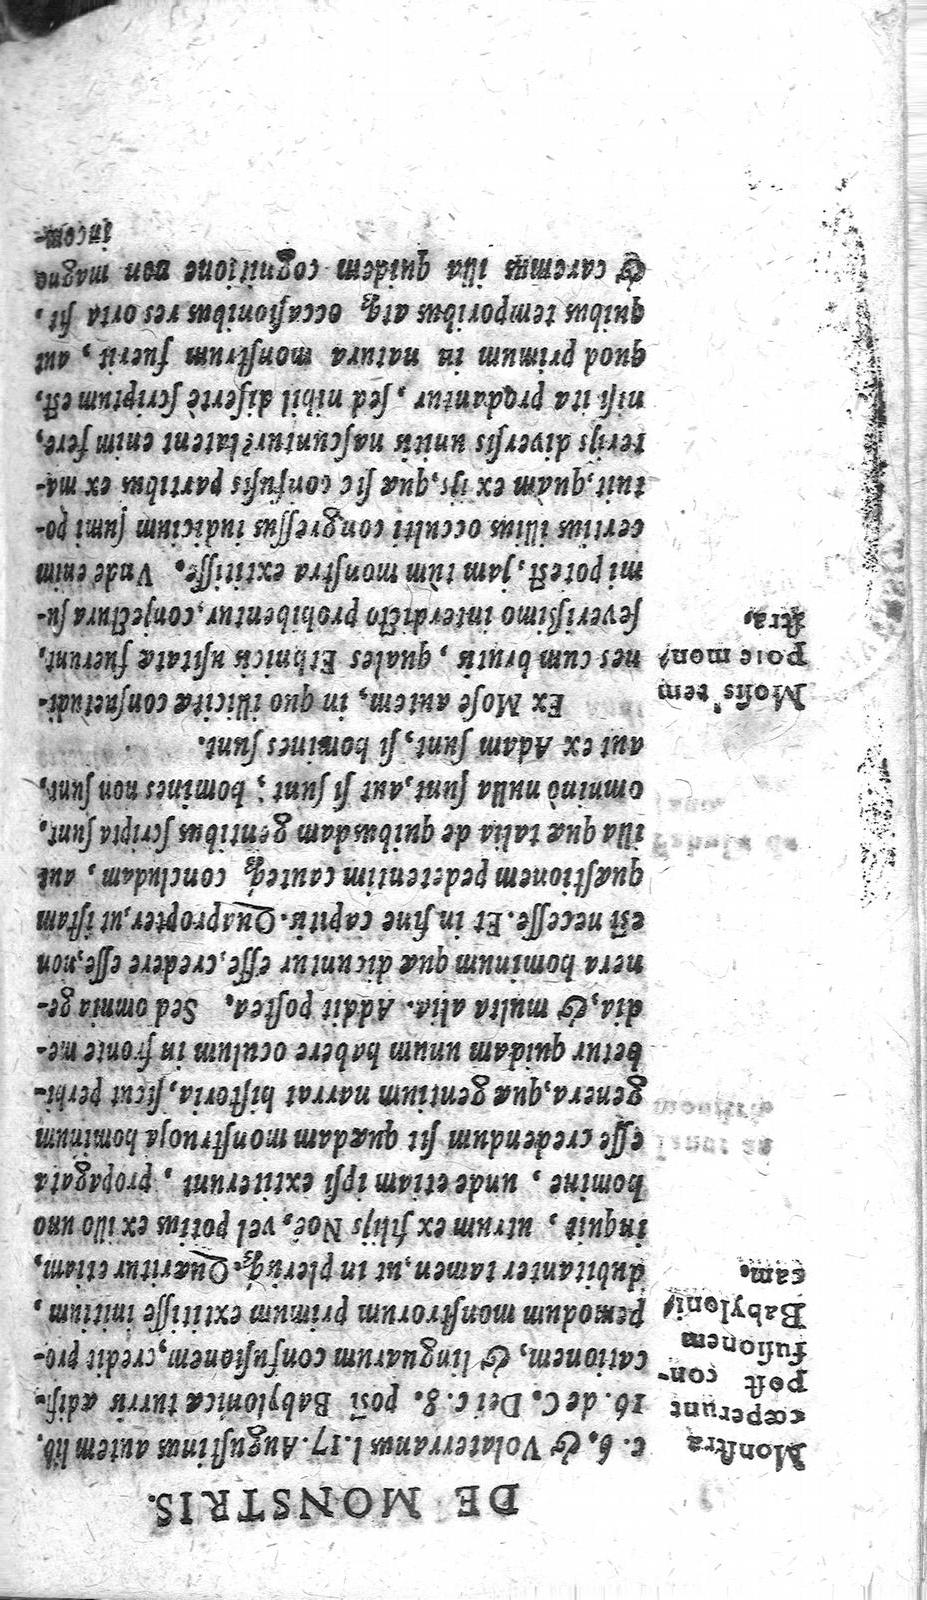 DE MONSTRIS.
c. 6. & Volaterranus l. 17. Auguſtinus autem lib.
16. de C. Dei c. 8. poſt Babylonicæ turris ædifi-
cationem, & linguarum confuſionem, credit pro-
pemodum monſtrorum primum extitiſſe initium,
dubitanter tamen, ut in pleriſq;. Quæritur etiam,
inquit, utrum ex filijs Noë, vel potius ex illo uno
homine, unde etiam ipſi extiterunt, propagata
eſſe credendum ſit quædam monſtruoſa hominum
genera, quæ gentium narrat hiſtoria, ſicut perhi-
betur quidam unum habere oculum in fronte me-
dia, & multa alia. Addit poſtea. Sed omnia ge-
nera hominum quæ dicuntur eſſe, credere eſſe, non
eſt neceſſe. Et in fine capitis. Quapropter, ut iſtam
quæſtionem pedetentim cauteq; concludam, aut
illa quæ talia de quibusdam gentibus ſcripta ſunt,
omninò nulla ſunt, aut ſi ſunt; homines non ſunt,
aut ex Adam ſunt, ſi homines ſunt.
Ex Moſe autem, in quo illicitæ conſuetudi-
nes cum brutis, quales Ethnicis uſitatæ fuerunt,
ſeveriſſimo interdicto prohibentur, conjectura ſu-
mi poteſt, jam tùm monſtra extitiſſe. Vnde enim
certius illius occulti congreſſus indicium ſumi po-
tuit, quàm ex ijs, quæ ſic confuſis partibus ex ma-
terijs diverſis unitis naſcuntur? latent enim fere,
niſi ita prodantur, ſed nihil diſertè ſcriptum eſt,
quod primum in natura monſtrum fuerit, aut
quibus temporibus atq; occaſionibus res orta ſit,
& caremus illa quidem cognitione non magno
incom-
Monſtra
cœperunt
poſt con-
fuſionem
Babyloni-
cam.
Moſis tem
pore mon-
ſtra.